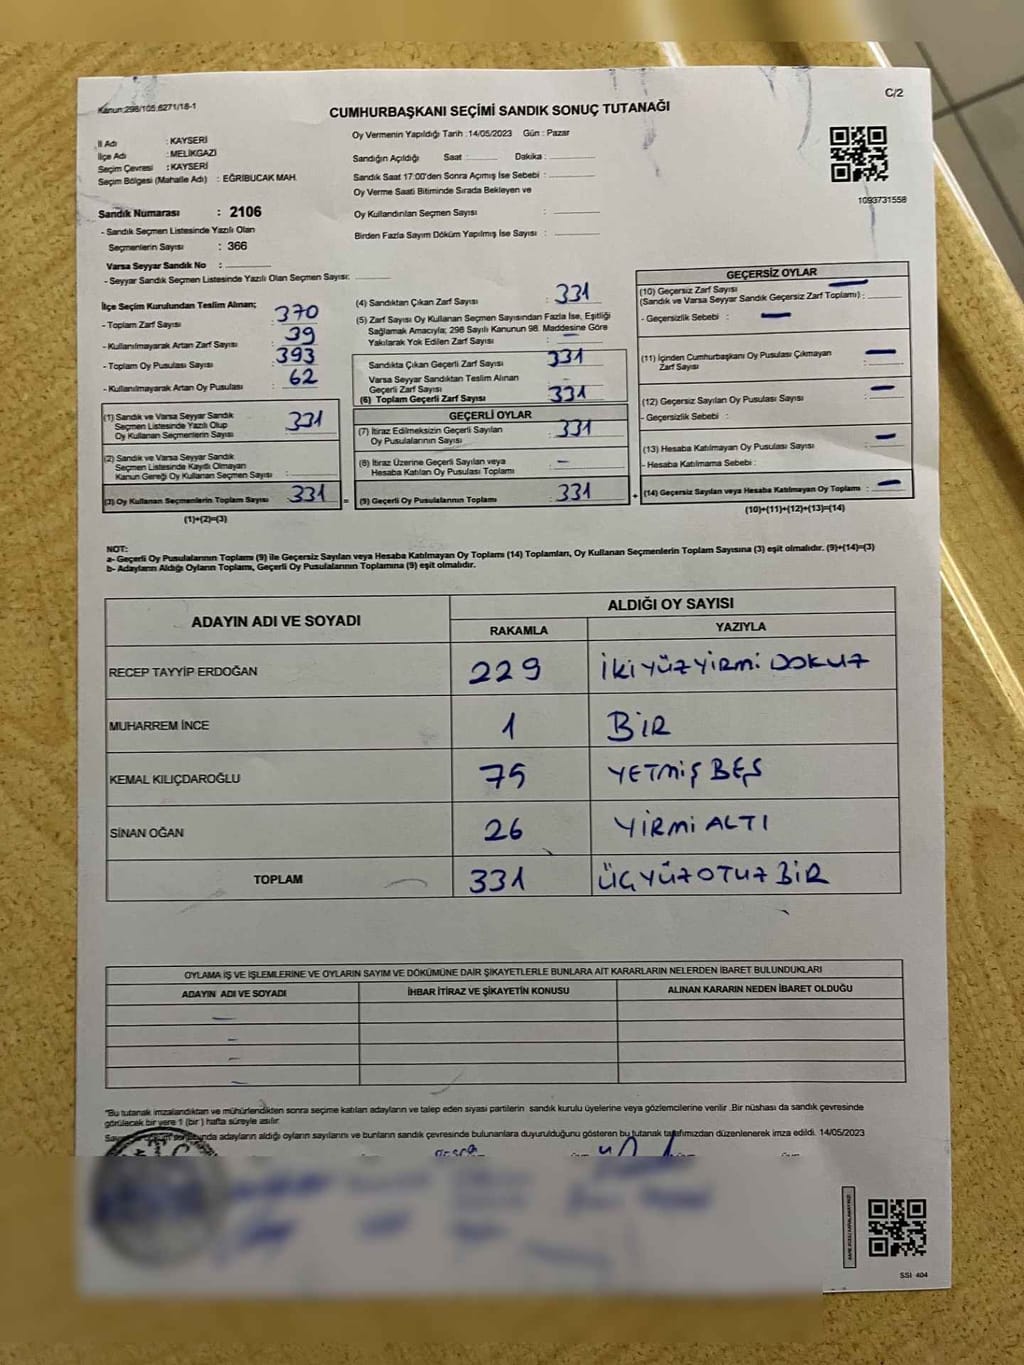 Kanun:298/105,6271/18-1
C/2
CUMHURBAŞKANI SEÇİMİ SANDIK SONUÇ TUTANAĞI
İl Adı : KAYSERİ
İlçe Adı : MELİKGAZİ
Seçim Çevresi : KAYSERİ
Seçim Bölgesi (Mahalle Adı) : EĞRİBUCAK MAH.
Sandık Numarası : 2106
- Sandık Seçmen Listesinde Yazılı Olan
Seçmenlerin Sayısı : 366
Varsa Seyyar Sandık No :
- Seyyar Sandık Seçmen Listesinde Yazılı Olan Seçmen Sayısı:
Oy Vermenin Yapıldığı Tarih :14/05/2023 Gün : Pazar
Sandığın Açıldığı Saat : Dakika :
Sandık Saat 17:00'den Sonra Açılmış İse Sebebi :
Oy Verme Saati Bitiminde Sırada Bekleyen ve
Oy Kullandırılan Seçmen Sayısı :
Birden Fazla Sayım Döküm Yapılmış İse Sayısı :
1093731558
İlçe Seçim Kurulundan Teslim Alınan;
- Toplam Zarf Sayısı : 370
- Kullanılmayarak Artan Zarf Sayısı : 39
- Toplam Oy Pusulası Sayısı : 393
- Kullanılmayarak Artan Oy Pusulası : 62
(1) Sandık ve Varsa Seyyar Sandık
Seçmen Listesinde Yazılı Olup
Oy Kullanan Seçmenlerin Sayısı : 331
(2) Sandık ve Varsa Seyyar Sandık
Seçmen Listesinde Kayıtlı Olmayan
Kanun Gereği Oy Kullanan Seçmen Sayısı :
(3) Oy Kullanan Seçmenlerin Toplam Sayısı : 331
(1)+(2)=(3)
(4) Sandıktan Çıkan Zarf Sayısı : 331
(5) Zarf Sayısı Oy Kullanan Seçmen Sayısından Fazla İse, Eşitliği
Sağlamak Amacıyla; 298 Sayılı Kanunun 98. Maddesine Göre
Yakılarak Yok Edilen Zarf Sayısı : —
Sandıkta Çıkan Geçerli Zarf Sayısı : 331
Varsa Seyyar Sandıktan Teslim Alınan
Geçerli Zarf Sayısı : –
(6) Toplam Geçerli Zarf Sayısı : 331
GEÇERLİ OYLAR
(7) İtiraz Edilmeksizin Geçerli Sayılan
Oy Pusulalarının Sayısı : 331
(8) İtiraz Üzerine Geçerli Sayılan veya
Hesaba Katılan Oy Pusulası Toplamı : –
= (9) Geçerli Oy Pusulalarının Toplamı : 331
GEÇERSİZ OYLAR
(10) Geçersiz Zarf Sayısı
(Sandık ve Varsa Seyyar Sandık Geçersiz Zarf Toplamı) : —
- Geçersizlik Sebebi : —
(11) İçinden Cumhurbaşkanı Oy Pusulası Çıkmayan
Zarf Sayısı : —
(12) Geçersiz Sayılan Oy Pusulası Sayısı : —
- Geçersizlik Sebebi :
(13) Hesaba Katılmayan Oy Pusulası Sayısı : —
- Hesaba Katılmama Sebebi :
+ (14) Geçersiz Sayılan veya Hesaba Katılmayan Oy Toplamı : —
(10)+(11)+(12)+(13)=(14)
NOT:
a- Geçerli Oy Pusulalarının Toplamı (9) ile Geçersiz Sayılan veya Hesaba Katılmayan Oy Toplamı (14) Toplamları, Oy Kullanan Seçmenlerin Toplam Sayısına (3) eşit olmalıdır. (9)+(14)=(3)
b- Adayların Aldığı Oyların Toplamı, Geçerli Oy Pusulalarının Toplamına (9) eşit olmalıdır.
ADAYIN ADI VE SOYADI ALDIĞI OY SAYISI
RAKAMLA YAZIYLA
RECEP TAYYİP ERDOĞAN 229 İKİYÜZYİRMİ DOKUZ
MUHARREM İNCE 1 BİR
KEMAL KILIÇDAROĞLU 75 YETMİŞ BEŞ
SİNAN OĞAN 26 YİRMİ ALTI
TOPLAM 331 ÜÇYÜZOTUZ BİR
OYLAMA İŞ VE İŞLEMLERİNE VE OYLARIN SAYIM VE DÖKÜMÜNE DAİR ŞİKAYETLERLE BUNLARA AİT KARARLARIN NELERDEN İBARET BULUNDUKLARI
ADAYIN ADI VE SOYADI İHBAR İTİRAZ VE ŞİKAYETİN KONUSU ALINAN KARARIN NEDEN İBARET OLDUĞU
"Bu tutanak imzalandıktan ve mühürlendikten sonra seçime katılan adayların ve talep eden siyasi partilerin sandık kurulu üyelerine veya gözlemcilerine verilir .Bir nüshası da sandık çevresinde
görülecek bir yere 1 (bir) hafta süreyle asılır.
adayların aldığı oyların sayılarını ve bunların sandık çevresinde bulunanlara duyurulduğunu gösteren bu tutanak tarafımızdan düzenlenerek imza edildi. 14/05/2023
SSI 404